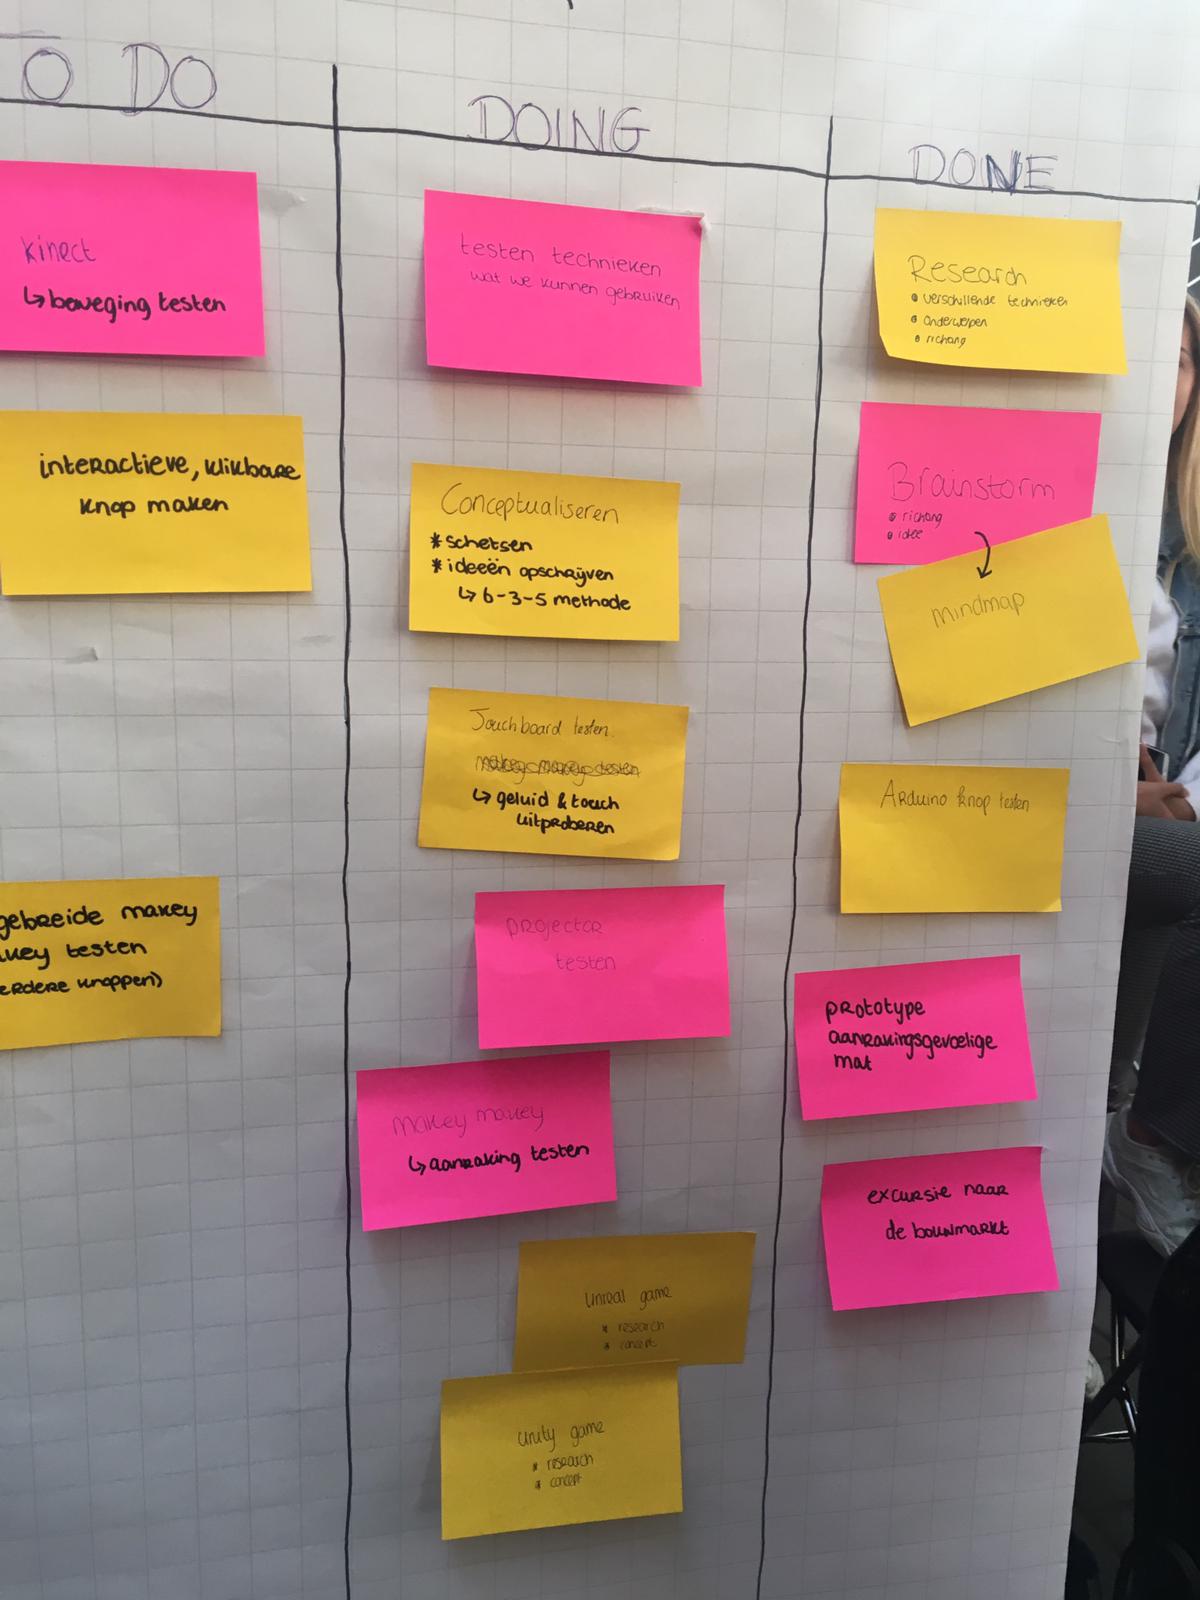 TO DO
kinect
↳ beweging testen
interactieve, klikbare
knop maken
gebreide makey
testen
knoppen)
DOING
testen technieken
wat we kunnen gebruiken
Conceptualiseren
* schetsen
* ideeën opschrijven
↳ 6-3-5 methode
Touchboard testen.
makey makey testen
↳ geluid & touch
uitproberen
projector
testen
makey makey
↳ aanraking testen
unreal game
* research
* concept
unity game
* research
* concept
DONE
Research
• verschillende technieken
• onderwerpen
• richang
Brainstorm
• richang
• idee
mindmap
Arduino knop testen
prototype
aanrakingsgevoelige
mat
excursie naar
de bouwmarkt